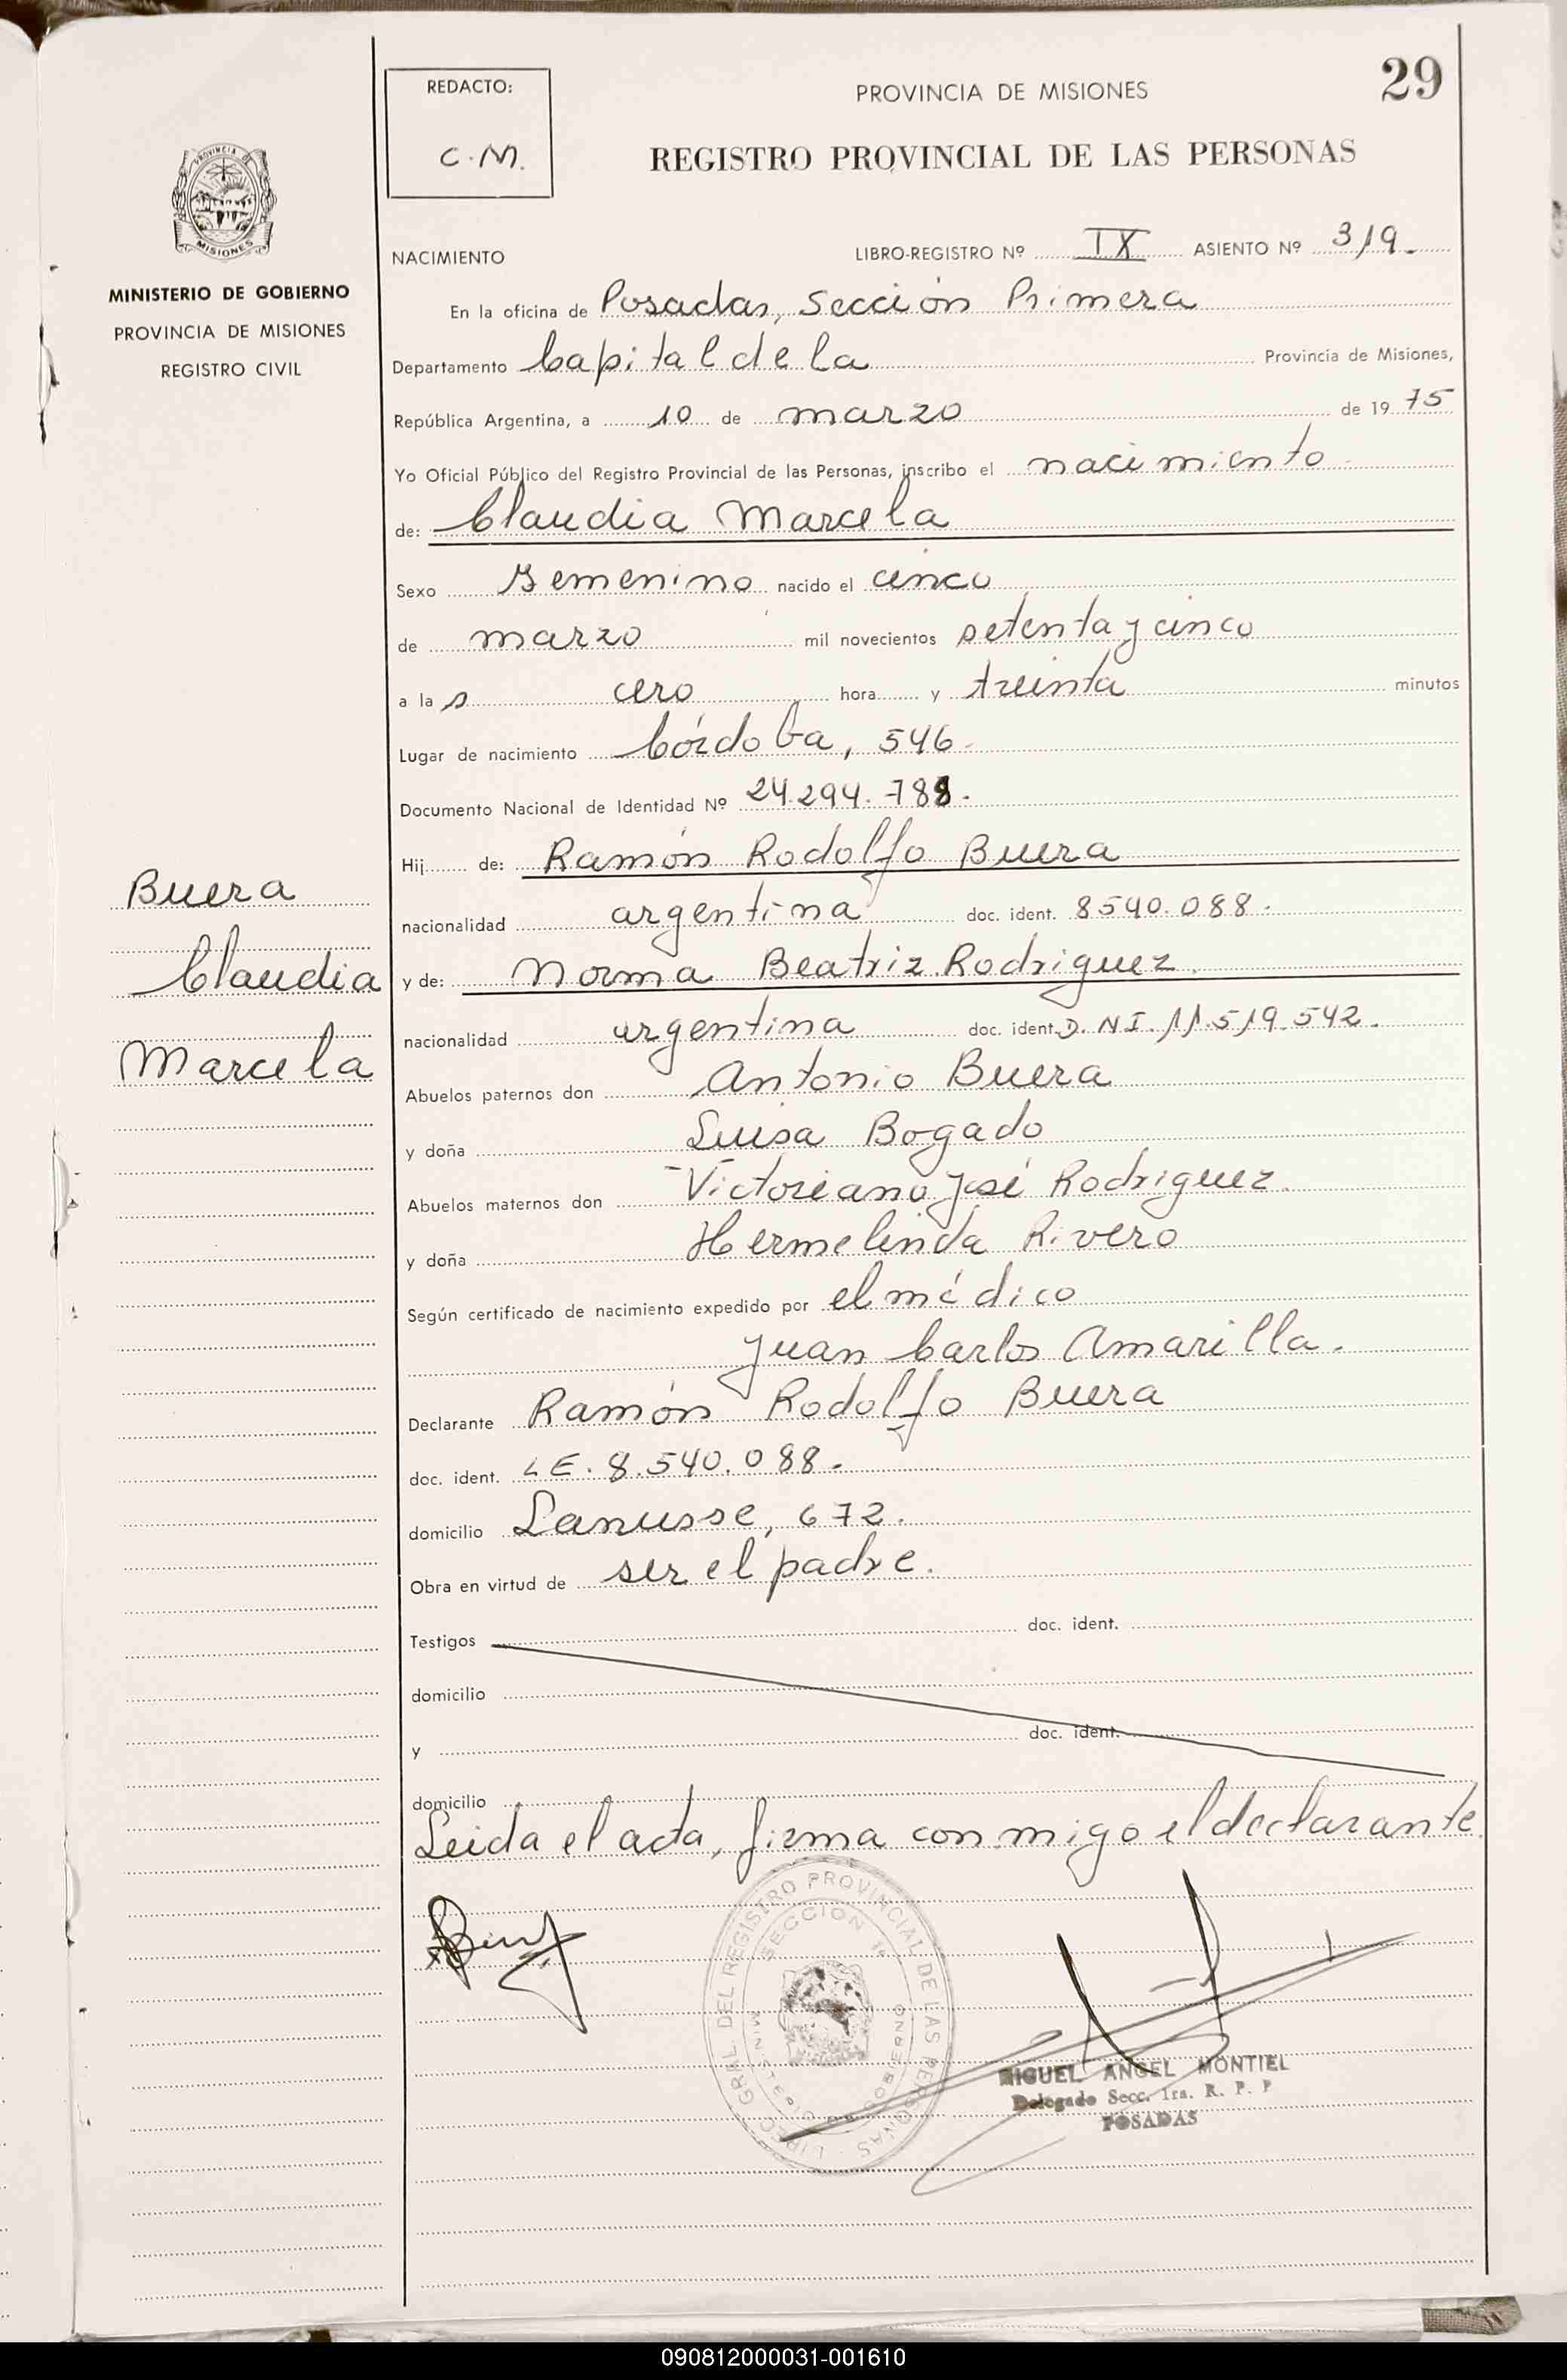 29
REDACTO:
C.M.
PROVINCIA DE MISIONES
REGISTRO PROVINCIAL DE LAS PERSONAS
PROVINCIA DE
MISIONES
MINISTERIO DE GOBIERNO
PROVINCIA DE MISIONES
REGISTRO CIVIL
NACIMIENTO LIBRO-REGISTRO Nº IX ASIENTO Nº 319.
En la oficina de Posadas, Sección Primera
Departamento Capital de la Provincia de Misiones,
República Argentina, a 10 de marzo de 1975
Yo Oficial Público del Registro Provincial de las Personas, inscribo el nacimiento
de: Claudia Marcela
Sexo Femenino nacido el cinco
de marzo mil novecientos setenta y cinco
a las cero hora y treinta minutos
Lugar de nacimiento Córdoba, 546.
Documento Nacional de Identidad Nº 24.294.788.
Hij de: Ramón Rodolfo Buera
nacionalidad argentina doc. ident. 8540.088.
y de: Norma Beatriz Rodriguez
nacionalidad argentina doc. ident. D.N.I. 11.519.542.
Abuelos paternos don Antonio Buera
y doña Luisa Bogado
Abuelos maternos don Victoriano José Rodriguez.
y doña Hermelinda Rivero
Según certificado de nacimiento expedido por el médico
Juan Carlos Amarilla.
Declarante Ramón Rodolfo Buera
doc. ident. LE. 8.540.088.
domicilio Lanusse, 672.
Obra en virtud de ser el padre.
Testigos doc. ident.
domicilio
y doc. ident.
domicilio
Leida el acta, firma conmigo el declarante
Buera
Claudia
Marcela
DEL REGISTRO PROVINCIAL DE LAS PERSONAS
SECCION
MIGUEL ANGEL MONTIEL
Delegado Secc. 1ra. R. P. P
POSADAS
090812000031-001610